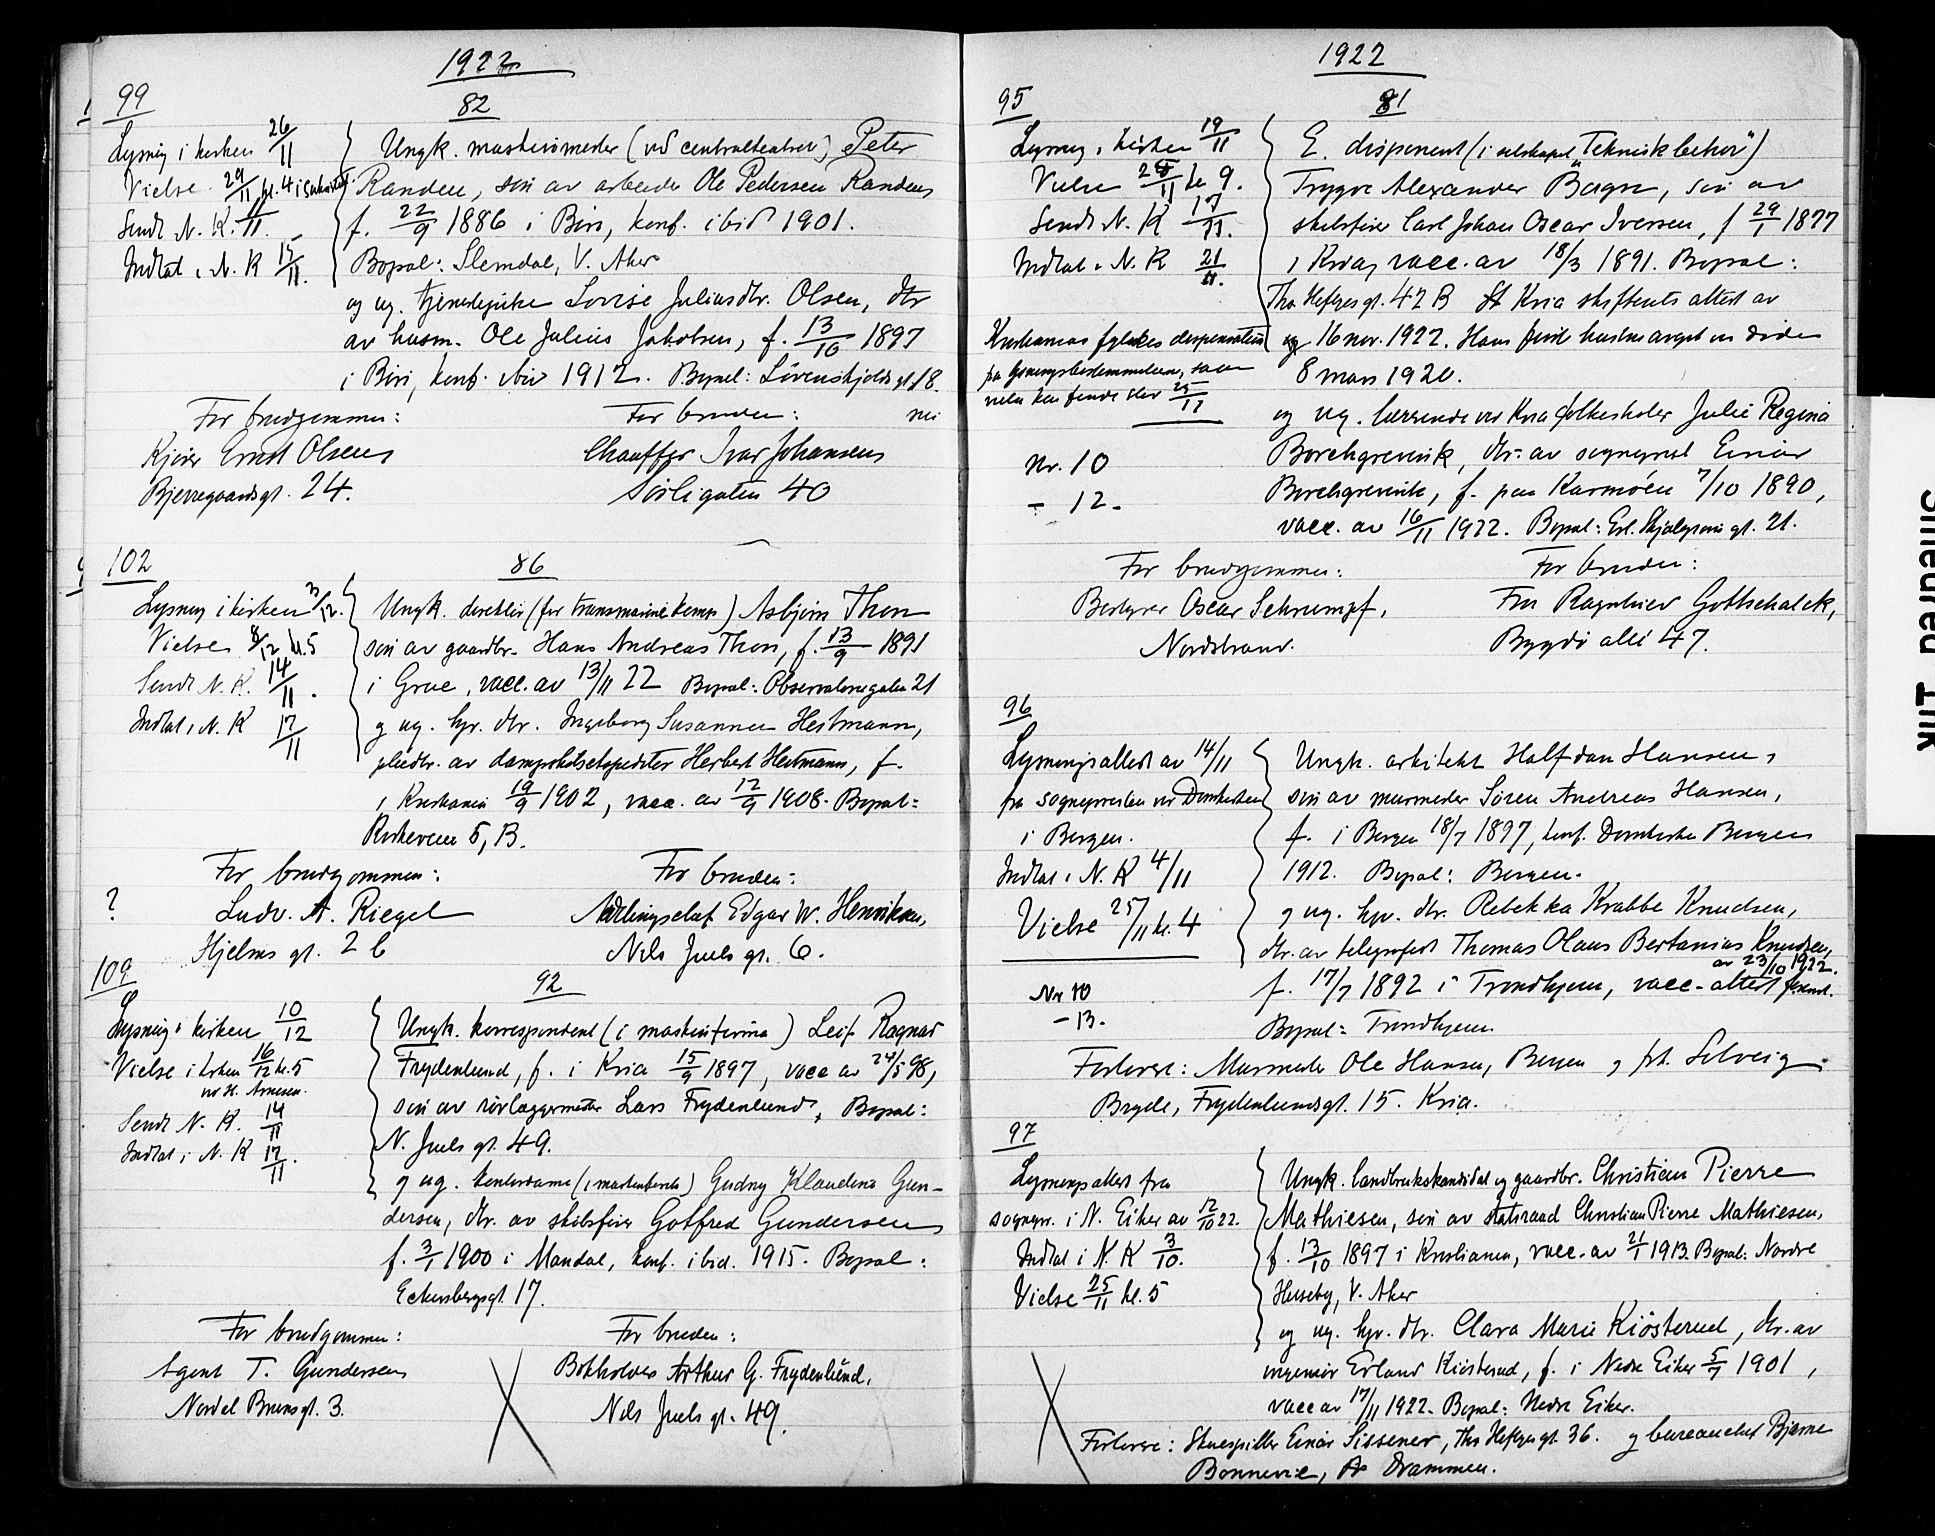 1922
99
82
Lysning i kirken 26/11
Ungk. maskinmester (ved centralteatret) Peter
Vielse 29/11 kl. 4 i
Randen, søn av arbeider Ole Pedersen Randen
Sendt N. K. /11.
f. 22/9 1886 i Biri, konf. ibid 1901.
Indtat i N. K 15/11.
Bopæl: Slemdal, V. Aker
og ug. tjenestepike Lovise Juliusdtr. Olsen, dtr
av husm. Ole Julius Jakobsen, f. 13/10 1897
i Biri, konf. ibid 1912. Bopæl: Løvenskjolds gt. 18.
For brudgommen:
For bruden:
nei
Kjører Ernst Olsen
Chauffør Ivar Johansen
Bjerregaardsgt. 24.
Sørligaten 40
102
86
Lysning i kirken 3/12.
Ungk. direktør (for transmarine komp.) Asbjørn Thon
Vielse 8/12 kl. 5
søn av gaardbr. Hans Andreas Thon, f. 13/9 1891
Sendt N. K. 14/11.
i Grue, vacc. av 13/11 22 Bopæl: Observatoriegaten 21
Indtat i N. K 17/11
g ug. hjv. dtr. Ingeborg Susanne Heitmann,
pleiedtr. av dampskibsekspeditør Herbert Heitmann, f.
i Kristiania 19/9 1902, vacc. av 12/9 1908. Bopæl:
5, B.
For brudgommen:
For bruden:
?
Ludv. A. Riegel
Edgar W. Henriksen,
Hjelms gt. 2 b
Nils Juels gt. 6.
109
92
Lysning i kirken 10/12
Ungk. korrespondent (i maskinfirma) Leif Ragnar
Vielse i kirken 16/12 kl. 5
Frydenlund, f. i Kria 15/9 1897, vacc av 24/5 98,
ved H. Arnesen.
Sendt N. K. 14/11
søn av rørlæggermester Lars Frydenlund, Bopæl:
Indtat i N. K 17/11.
N. Juels gt. 49.
g ug. kontordame (i maskinfirma) Gudny Klaudine Gun-
dersen, dtr. av skibsfører Gotfred Gundersen
f. 3/1 1900 i Mandal, konf. ibid. 1915. Bopæl:
Eckersbergsgt. 17.
For brudgommen:
For bruden:
Agent T. Gundersen
Bokholder Arthur G. Frydenlund.
Nordal Brunsgt. 3.
Nils Juels gt. 49.
1922
95
81
Lysning i kirken 19/11
E. disponent (i selskapet "Teknisk behør")
Vielse 25/11 kl 9.
Trygve Alexander Bagn, søn av
Sendt N. K 17/11.
skibsfører Carl Johan Oscar Iversen, f 29/1 1877
Indtat i N. K 21/11.
i Kria, vacc. av 18/3 1891. Bopæl:
Tho. Heftyes gt. 42 B St Kria skifterets attest av
Kristianias fylkes dispensation
16 nov. 1922. Hans første hustru avgik ved døden
fra lysningsbestemmelsen, saa en
8 mars 1920.
vielse kan finde sted 25/11
og ug. lærerinde ved Kria folkeskoler Julie Regina
Nr. 10
Borchgrevink, dtr. av sogneprest Einar
- 12.
Borchgrevink, f. paa Karmøen 7/10 1890,
vacc. av 16/11 1922. Bopæl: Erl. Skjalgsøns gt. 21.
For brudgommen:
For bruden:
Bestyrer Oscar Schrumpf,
Fru Ragnhild Gottschalck,
Nordstrand.
Bygdø alle 47.
96
Lysningsattest av 14/11
Ungk. arkitekt Halfdan Hansen,
fra sognepresten ved Domkirken
søn av murmester Søren Andreas Hansen,
i Bergen.
f. i Bergen 18/7 1897, konf. Domkirken Bergen
Indtat i N. K 4/11
1912. Bopæl: Bergen.
Vielse 25/11 kl. 4
g ug. hjv. dtr. Rebekka Krabbe Knudsen,
dtr. av telegrafist Thomas Olaus Bertanius Knudsen,
av 23/10 1922.
Nr 10
f. 17/7 1892 i Trondhjem, vacc-attest
- 13.
Bopæl: Trondhjem.
Forlovere: Murmester Ole Hansen, Bergen g frk. Solveig
Bryde, Frydenlundsgt. 15. Kria.
97
Lysningsattest fra
Ungk. landbrukskandidat og gaardbr. Christian Pierre
sognepr. i N. Eiker av 12/10 22.
Mathiesen, søn av statsraad Christian Pierre Mathiesen,
Indtat i N. K 3/10.
f. 13/10 1897 i Kristiania, vacc. av 21/1 1913. Bopæl: Nordre
Vielse 25/11 kl. 5
Huseby, V. Aker
og ug. hjv. dtr. Clara Marie Kiøsterud, dtr. av
ingeniør Erland Kiøsterud, f. i Nedre Eiker 5/7 1901,
vacc av 17/11 1922. Bopæl: Nedre Eiker.
Forlovere: Skuespiller Einar Sissener, Ths Heftyes gt. 36. g bureauchef Bjarne
Bonnevie, Drammen.
Smedred Trk